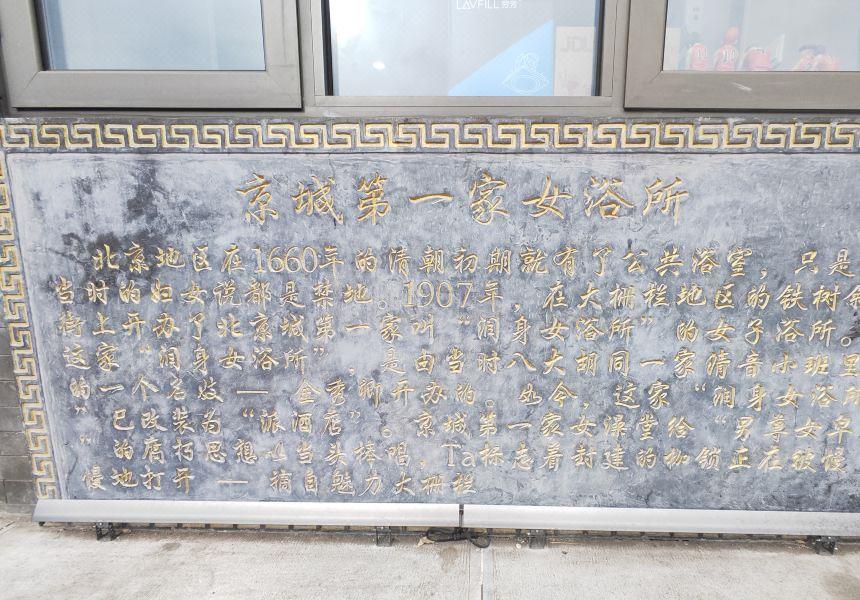 LAVFILL 劳芳
JDL
京城第一家女浴所
北京地区在1660年的清朝初期就有了公共浴室，只是
当时的妇女说都是禁地。1907年，在大栅栏地区的铁树斜
街上开办了北京城第一家叫“润身女浴所”的女子浴所。
这家“润身女浴所”，是由当时八大胡同一家清音小班里
的一个名妓—金秀卿开办的。如今，这家“润身女浴所
”已改装为“派酒店”。京城第一家女澡堂给“男尊女卑
”的腐朽思想以当头棒唱，Ta标志着封建的枷锁正在被慢
慢地打开—摘自魅力大栅栏